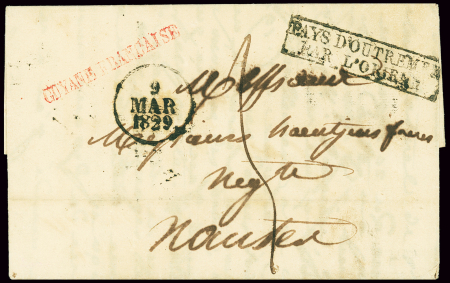 GUYANE FRANÇAISE
PAYS D'OUTREMER
PAR L'ORIENT
9
MAR
1829
Messieurs
Messieurs haentjens frères
Negts
Nantes